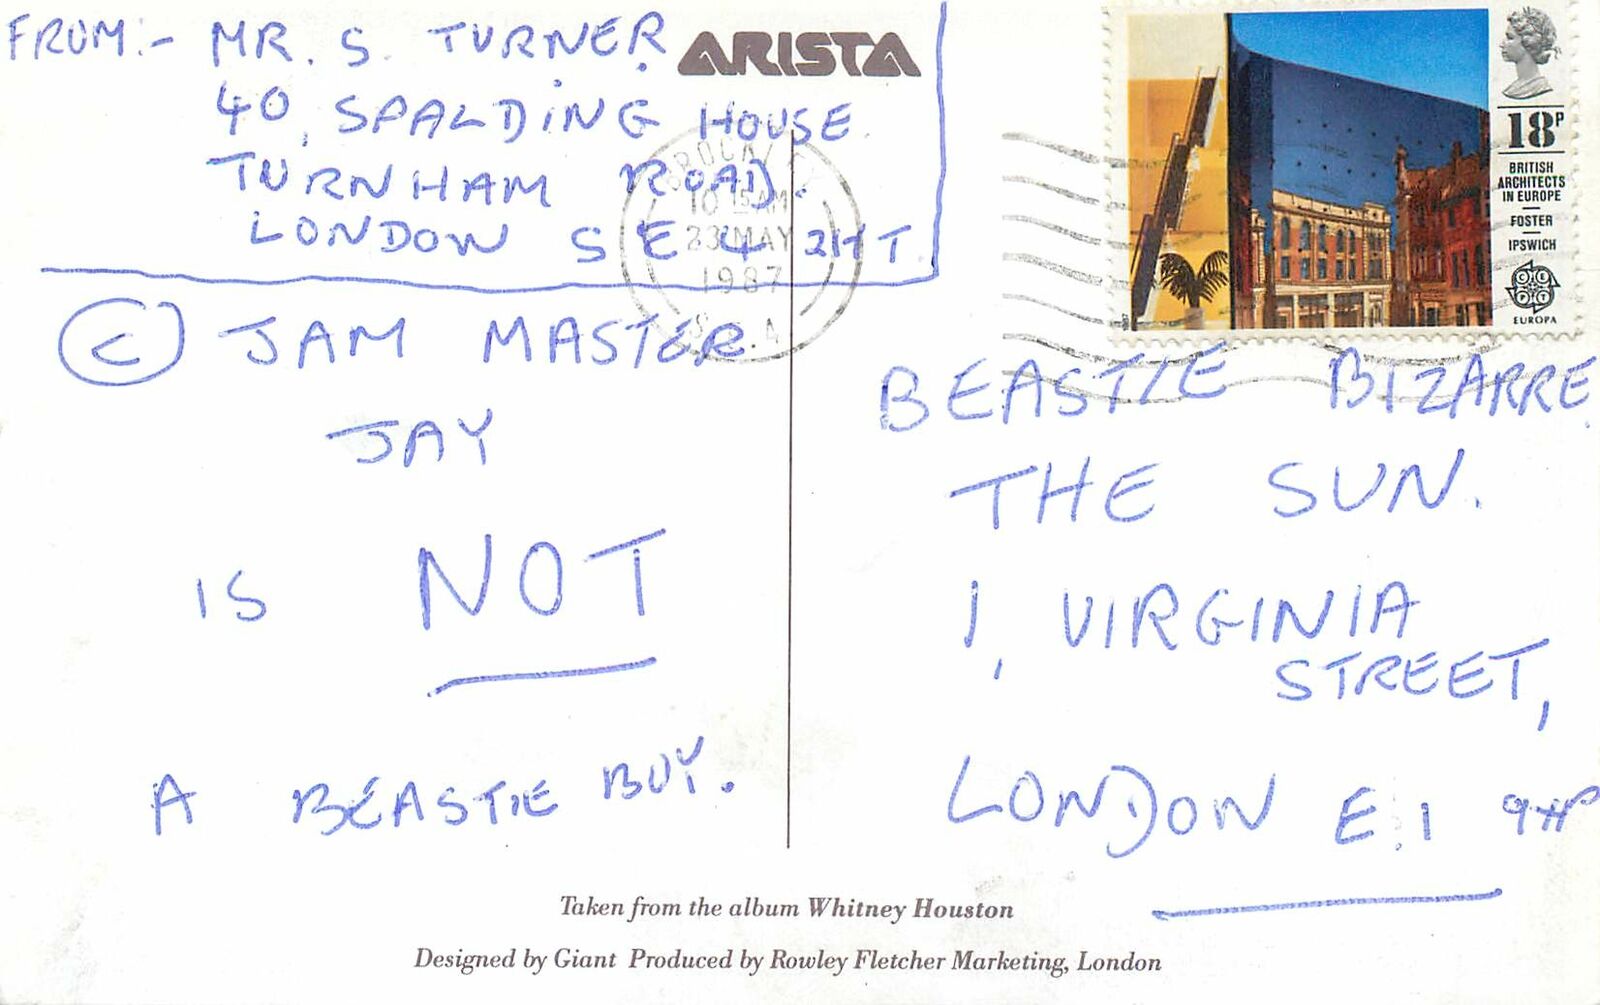 FROM:- MR. S. TURNER.
40, SPALDING HOUSE.
TURNHAM ROAD.
LONDON SE4 2HT.
ARISTA
BROCKLEY
10 15 AM
23 MAY
1987
S.E.4
18P
BRITISH
ARCHITECTS
IN EUROPE
FOSTER
IPSWICH
CEPT
EUROPA
1987
Ⓒ JAM MASTER
JAY
IS NOT
A BEASTIE BOY.
BEASTIE BIZARRE.
THE SUN.
1, VIRGINIA
STREET,
LONDON E.1 9HP
Taken from the album Whitney Houston
Designed by Giant Produced by Rowley Fletcher Marketing, London